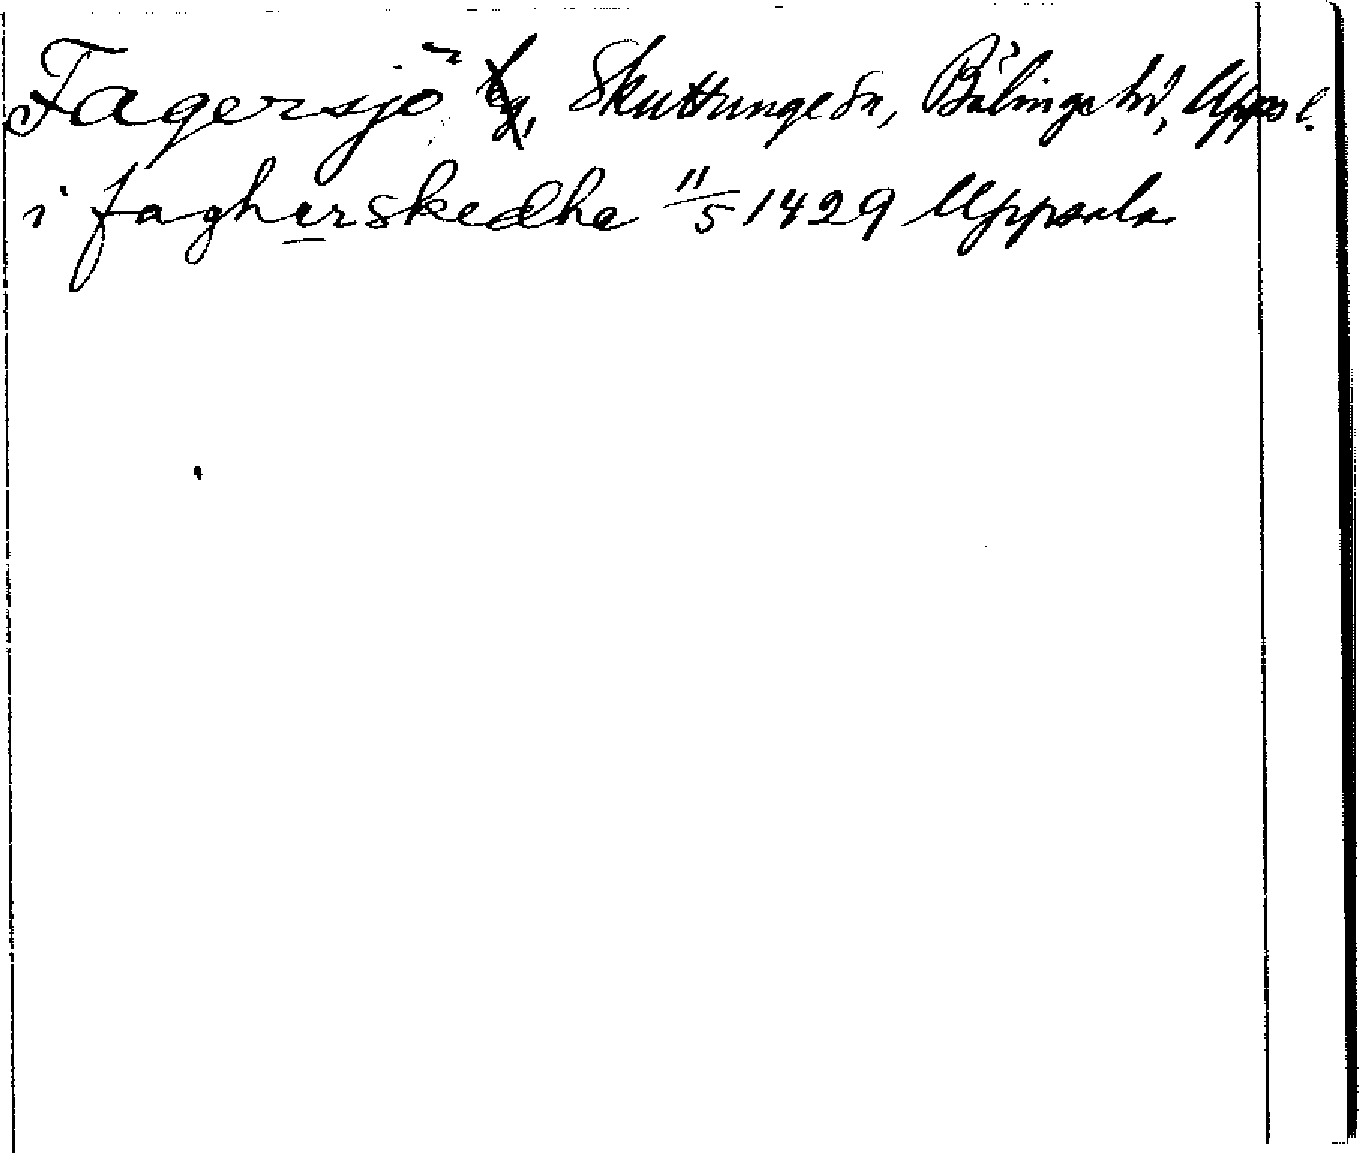 Fagersjö by, Skuttunge sn, Bälinge hd, Upps l.
i fagherskedhe 11/5 1429 Uppsala